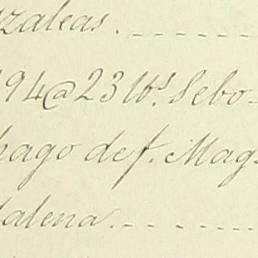 zaleas.
94@23 lbs. Sebo
pago def. Mag
dalena